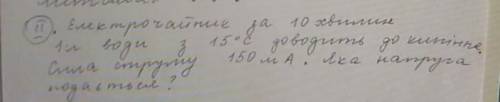 11. Електрочайник за 10 хвилин
1л води з 15°C доводить до кипіння.
Сила струму 150 мА. Яка напруга
подається?